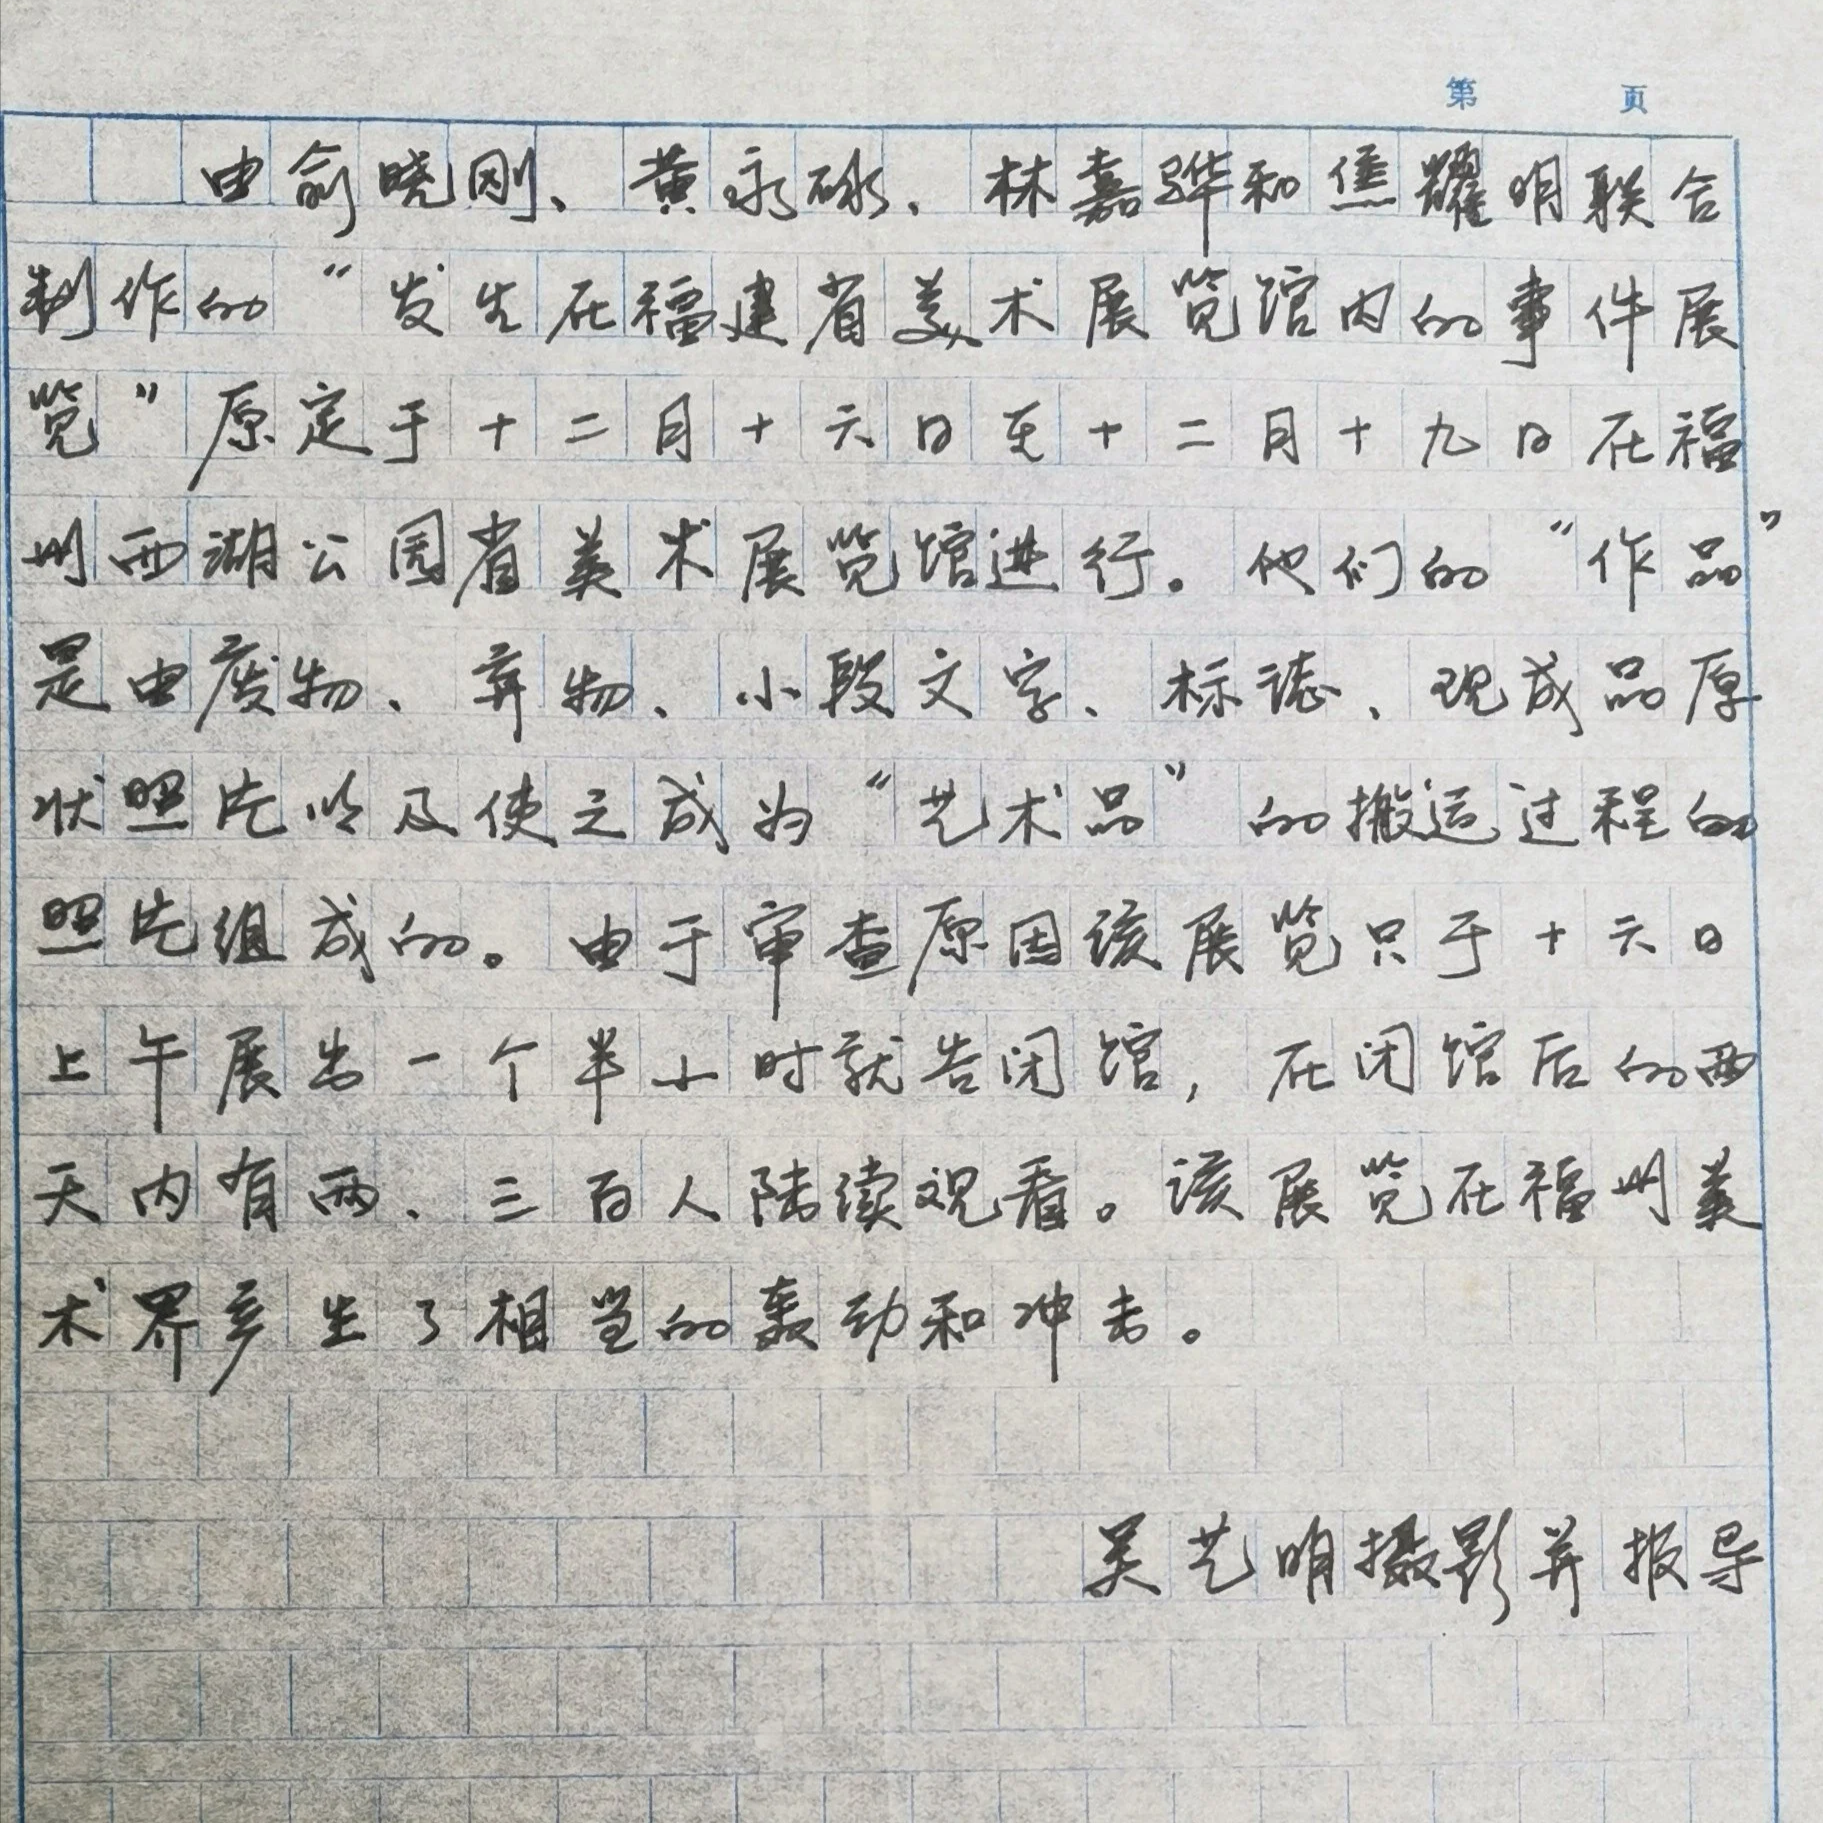 第 页
由俞晓刚、黄永砯、林嘉骅和焦耀明联合
制作的“发生在福建省美术展览馆内的事件展
览”原定于十二月十六日至十二月十九日在福
州西湖公园省美术展览馆进行。他们的“作品”
是由废物、弃物、小段文字、标誌、现成品原
状照片以及使之成为“艺术品”的搬运过程的
照片组成的。由于审查原因该展览只于十六日
上午展出一个半小时就告闭馆，在闭馆后的两
天内有两、三百人陆续观看。该展览在福州美
术界产生了相当的轰动和冲击。
吴艺明摄影并报导